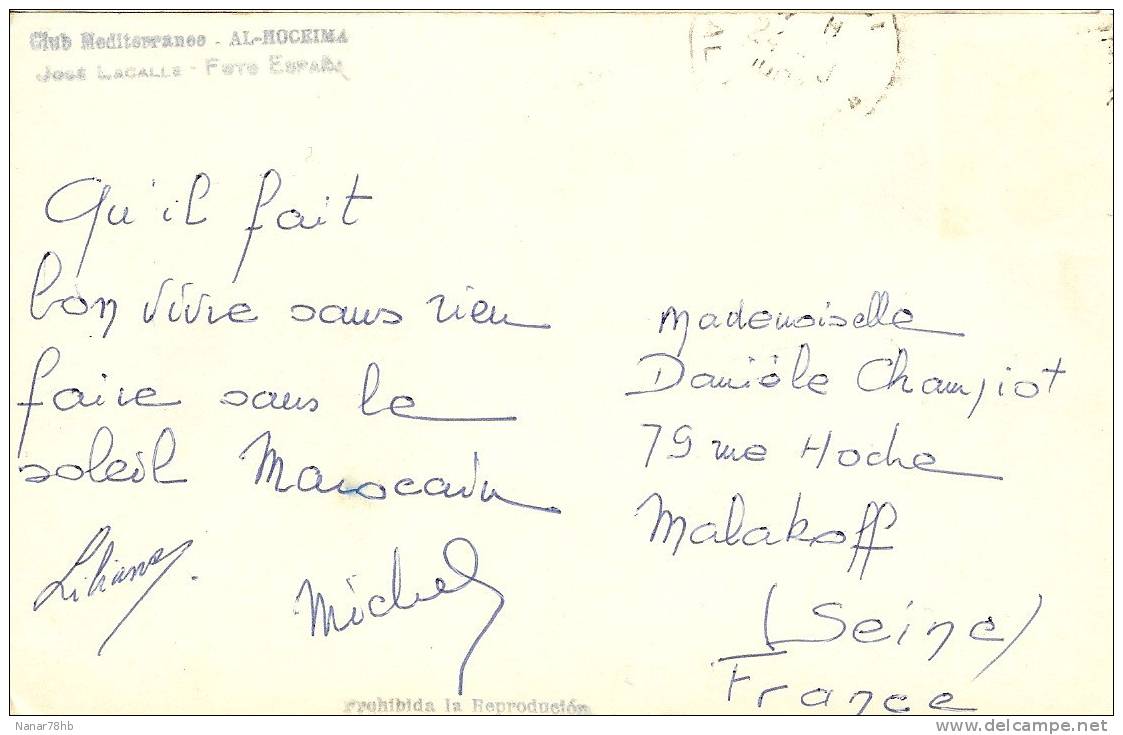 Club Mediterranee - AL-HOCEIMA
JOSÉ LACALLE - FOTO ESPAÑA
Qu'il fait
bon vivre sans rien
faire sans le
soleil Marocain
Liliane.
Michel
Mademoiselle
Danièle Champiot
79 rue Hoche
Malakoff
(Seine)
France
Prohibida la Reproducción
Nanar78hb
delcampe.net